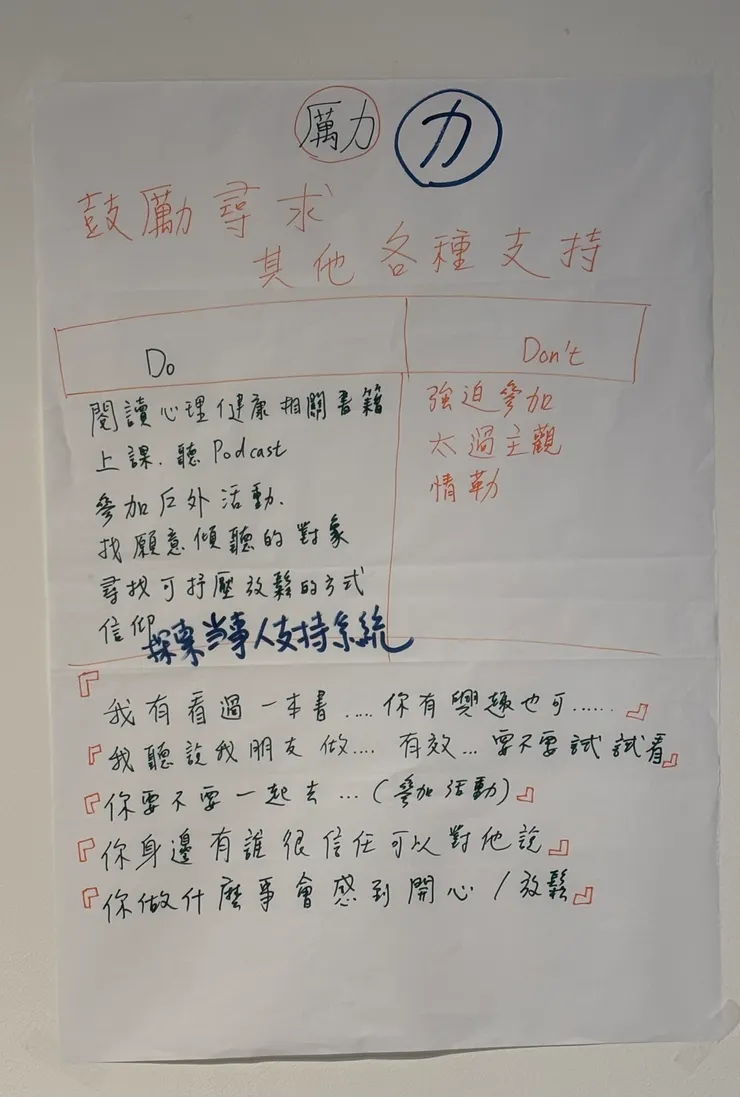 厲力 力
鼓勵尋求
其他各種支持
Do Don't
閱讀心理健康相關書籍
上課、聽 Podcast
參加戶外活動.
找願意傾聽的對象
尋找可抒壓放鬆的方式
信仰
探索当事人支持系統
強迫參加
太過主觀
情勒
『我有看過一本書.....你有興趣也可......』
『我聽說我朋友做....有效...要不要試試看』
『你要不要一起去...(參加活動)』
『你身邊有誰很信任可以對他說』
『你做什麼事會感到開心/放鬆』